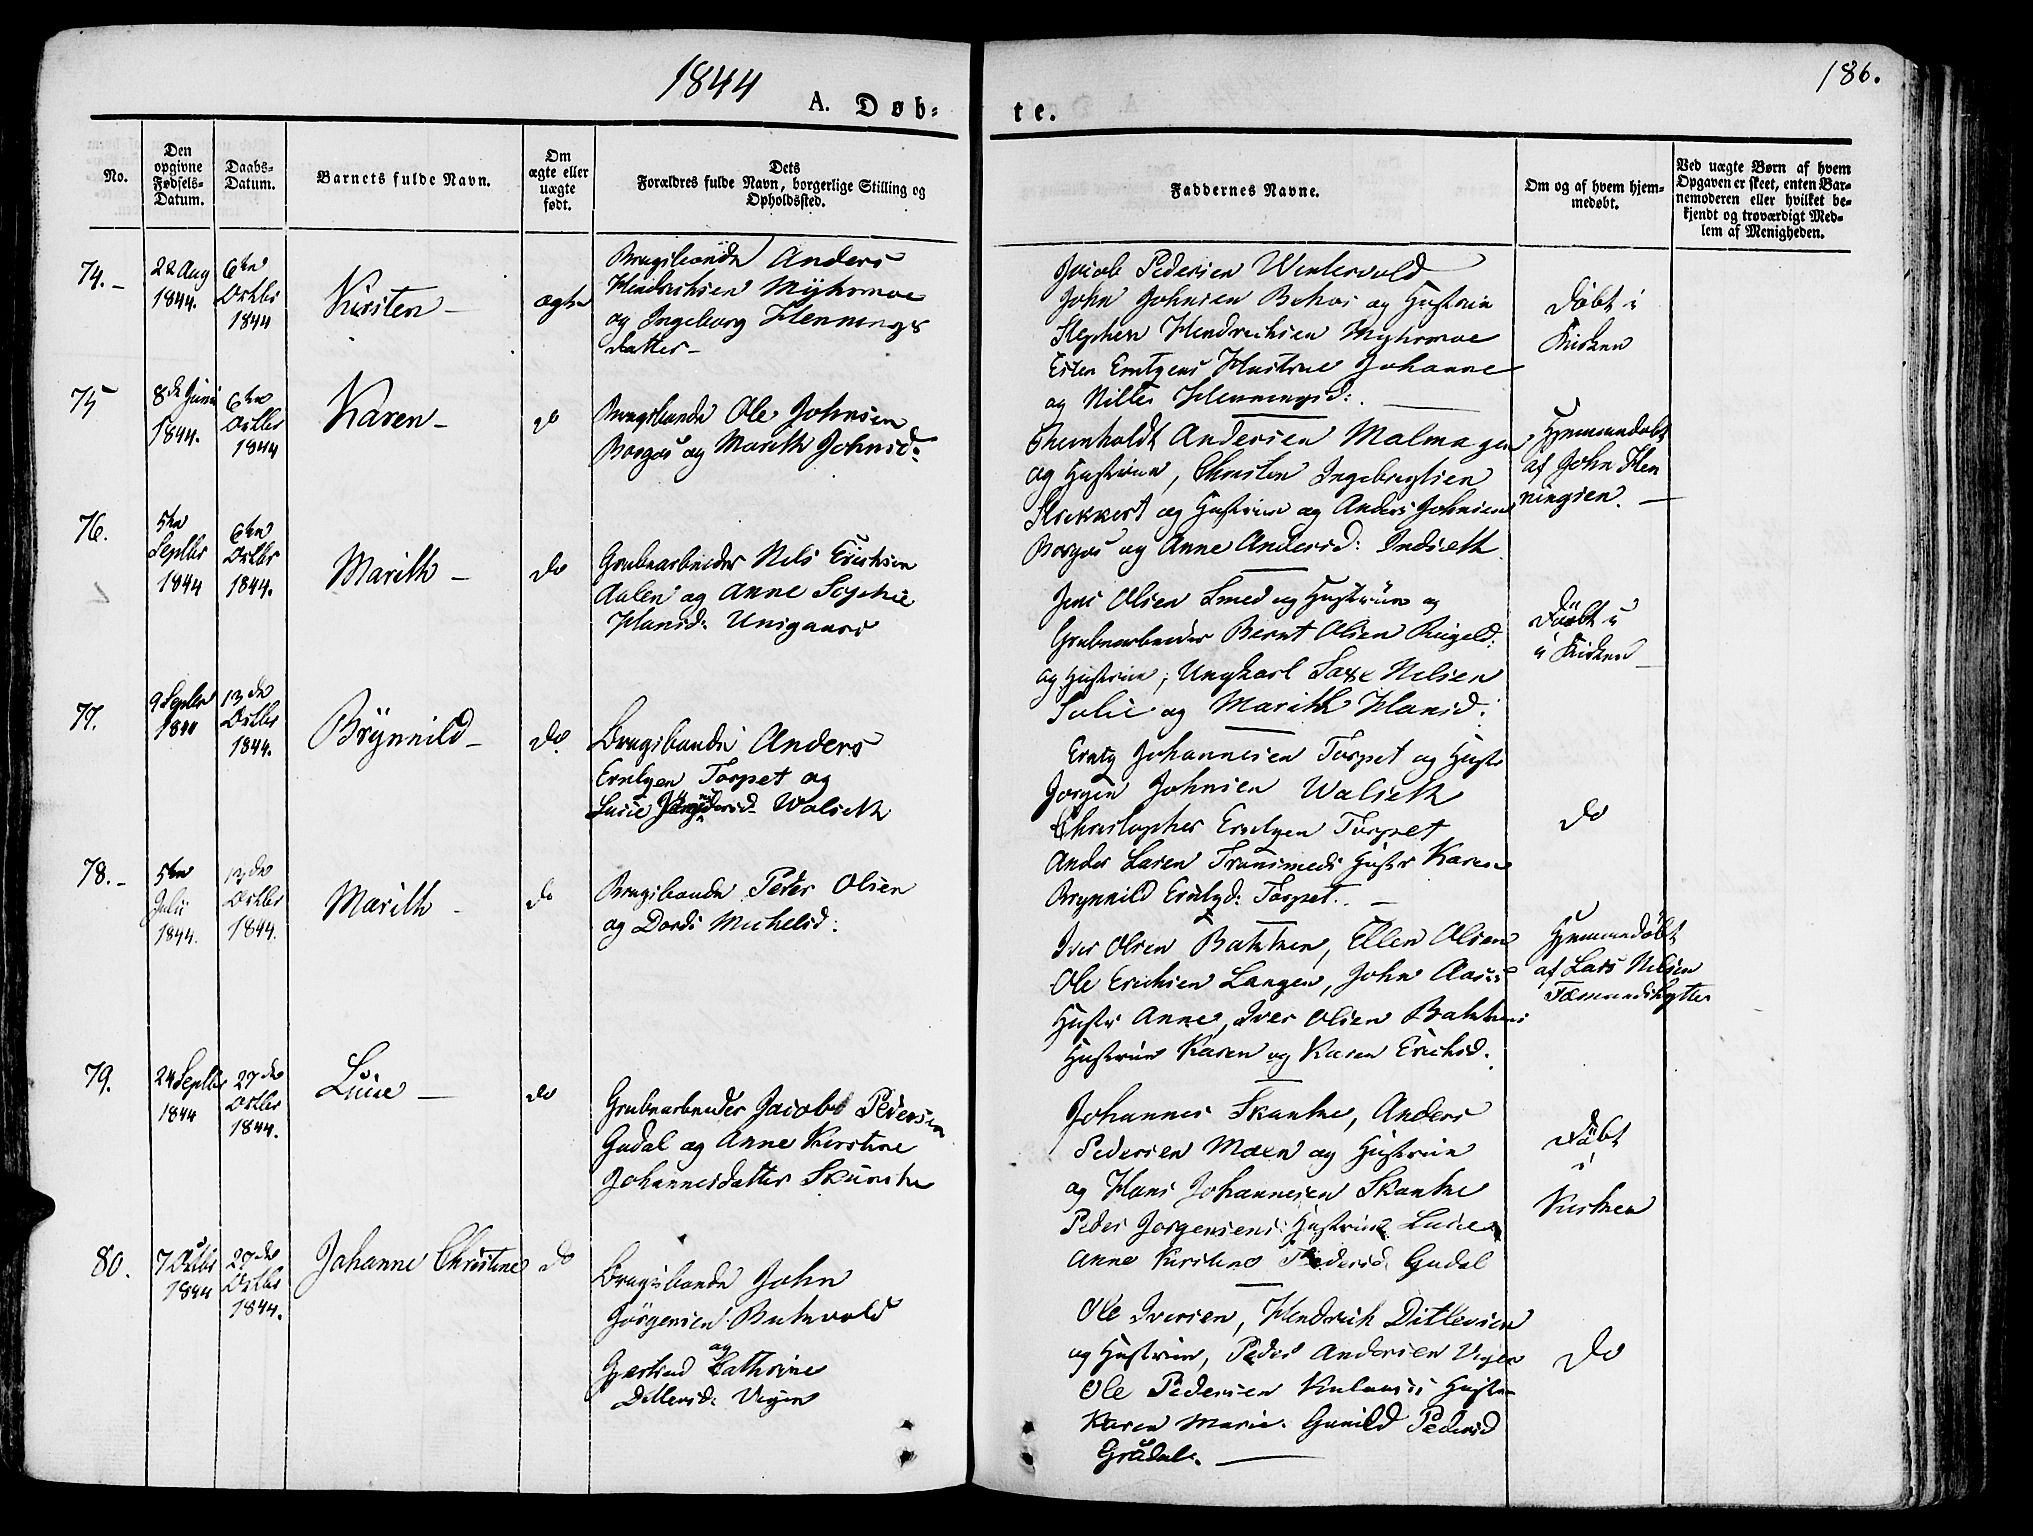 1844
186.
A. Døb-
te.
No.
Den
opgivne
Fødsels-
Datum.
Daabs-
Datum.
Barnets fulde Navn.
Om
ægte eller
uægte
født.
Dets
Forældres fulde Navn, borgerlige Stilling og
Opholdssted.
Faddernes Navne.
Om og af hvem hjem-
medøbt.
Ved uægte Børn af hvem
Opgaven er skeet, enten Bar-
nemoderen eller hvilket be-
kjendt og troværdigt Med-
lem af Menigheden.
74.-
22 Aug
1844.
6te
Octbr
1844
Kirsten -
ægte
Brugsbonde Anders
Hendrichsen Myhrmoe
og Ingeborg Hennings
datter -
Jacob Pedersen Wintervold
John Johnsen Bekos og Hustrue
Stephen Hendrichsen Myhrmoe
Esten Erntsens Hustrue Johanne
og Nilles Henningsd:.
Døbt i
Kirken
75
8de Juni
1844.
6te
Octbr
1844
Karen -
do
Brugsbonde Ole Johnsen
Borgos og Marith Johnsd:
Andersen Malmagen
og Hustrue, Christen Ingebrigtsen
og Hustrue og Anders Johnsen
Borgos og Anne Andersd: Indseth
Hjemmedøbt
af John Hen
ningsen. -
76.
5te
Septbr
1844
6te
Octbr
1844.
Marith -
do
Grubearbeider Nils Erichsen
Aalen og Anne Sophie
Hansd: Unsgaard
Jens Olsen Smed og Hustrue og
Grubearbeider Bernt Olsen
og Hustrue, Ungkarl Saxe Nilsen
Solie og Marith Hansd:
Døbt i
i Kirken -
77.
9 Septbr
1844
13de
Octbr
1844.
Brynnild -
do.
Brugsbonde Anders
Erntsen Torpet og
Lucie Walseth
Erntz Johannesen Torpet og Hustr
Jorgen Johnsen Walseth
Christopher Erntsen Torpet
Anders Larsen Hustr Karen
Brynnild Erntzd: Torpet. -
do
78.-
5te
Juli
1844.
13de
Octbr
1844.
Marith -
do
Brugsbonde Peder Olsen
og Dordi Michelsd:
Iver Olsen Bakken, Ellen Olsen
Ole Erichsen Langen, John Aases
Hustr Anne, Iver Olsen Bakkens
Hustrue Karen og Karen Erichsd.
Hjemmedøbt
af Lars Nilsen
Fæmundshytten
79.
24 Septbr
1844
27de
Octbr
1844.
Lucie -
do
Grubearbeider Jacob Pedersen
Gudal og Anne Kirstine
Johannesdatter Skancke
Johannes Skanke, Anders
Pedersen Moen og Hustrue
og Hans Johannesen Skanke
Peder Jorgensens Hustrue Lucie
Anne Kirstine Pedersd. Gudal
Døbt
i
Kirken
80.
7 Octbr
1844
27de
Octbr
1844.
Johanne Christine
do
Brugsbonde John
Jörgensen Bukvold
og
Gjertrud Cathrine
Ditlevsd: Vigen
Ole Iversen, Hendrich Ditlevsen
og Hustrue, Peder Andersen Vigen
Ole Pedersen Hustr
Karen Marie. Gunild Pedersd
Grådal. -
do